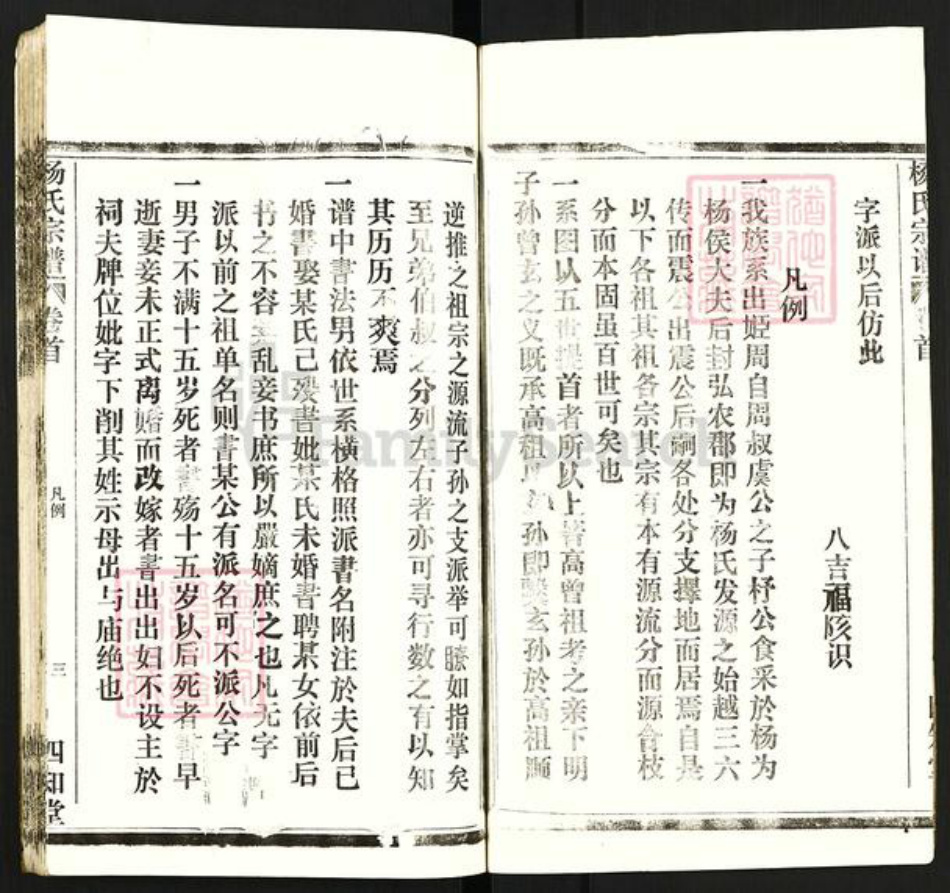 杨氏宗谱 卷首
字派以后仿此
八吉福陔识
凡例
一我族系出姬周自周叔虞公之子杼公食采於杨为
杨侯大夫后封弘农郡即为杨氏发源之始越三六
传而震公出震公后嗣各处分支择地而居焉自是
以下各祖其祖各宗其宗有本有源流分而源合枝
分而本固虽百世可矣也
一系图以五世提首者所以上皆高曾祖考之亲下明
子孙曾玄之义既承高祖 孙即 玄孙於高祖顺
逆推之祖宗之源流子孙之支派举可瞭如指掌矣
至兄弟伯叔之分列左右者亦可寻行数之有以知
其历历不爽焉
一谱中書法男依世系横格照派書名附注於夫后已
婚書娶某氏已殁書妣某氏未婚書聘某女依前后
书之不容紊乱妾书庶所以嚴嫡庶之也凡无字
派以前之祖单名则書某公有派名可不派公字
一男子不满十五岁死者書殇十五岁以后死者書早
逝妻妾未正式离婚而改嫁者書出出妇不设主於
祠夫牌位妣字下削其姓示母出与庙绝也
杨氏宗谱 卷首
凡例
三
四知堂
FamilySearch